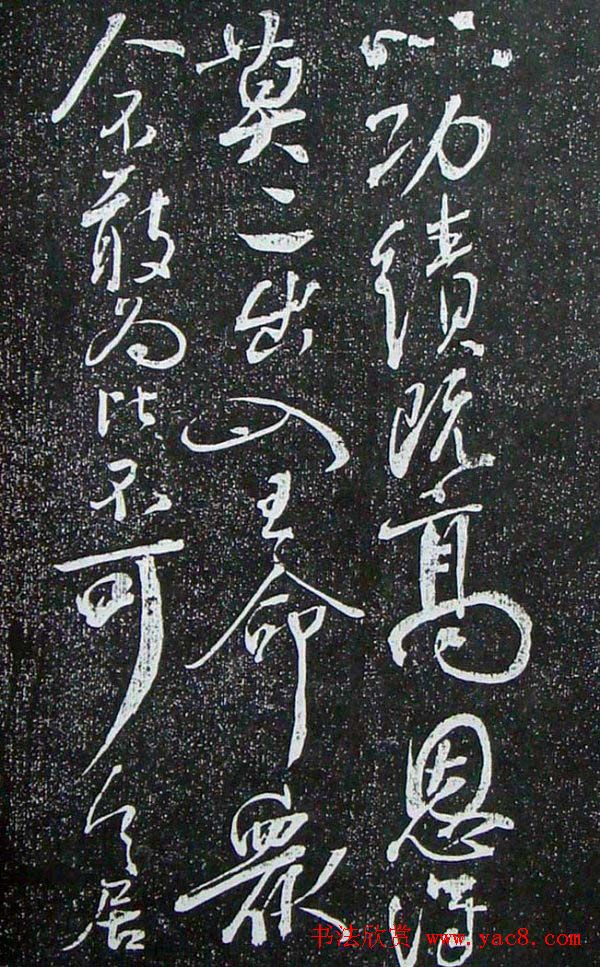 以功績既高恩澤
莫二出入王命眾
人不敢為比不可令居
书法欣赏 www.yac8.com